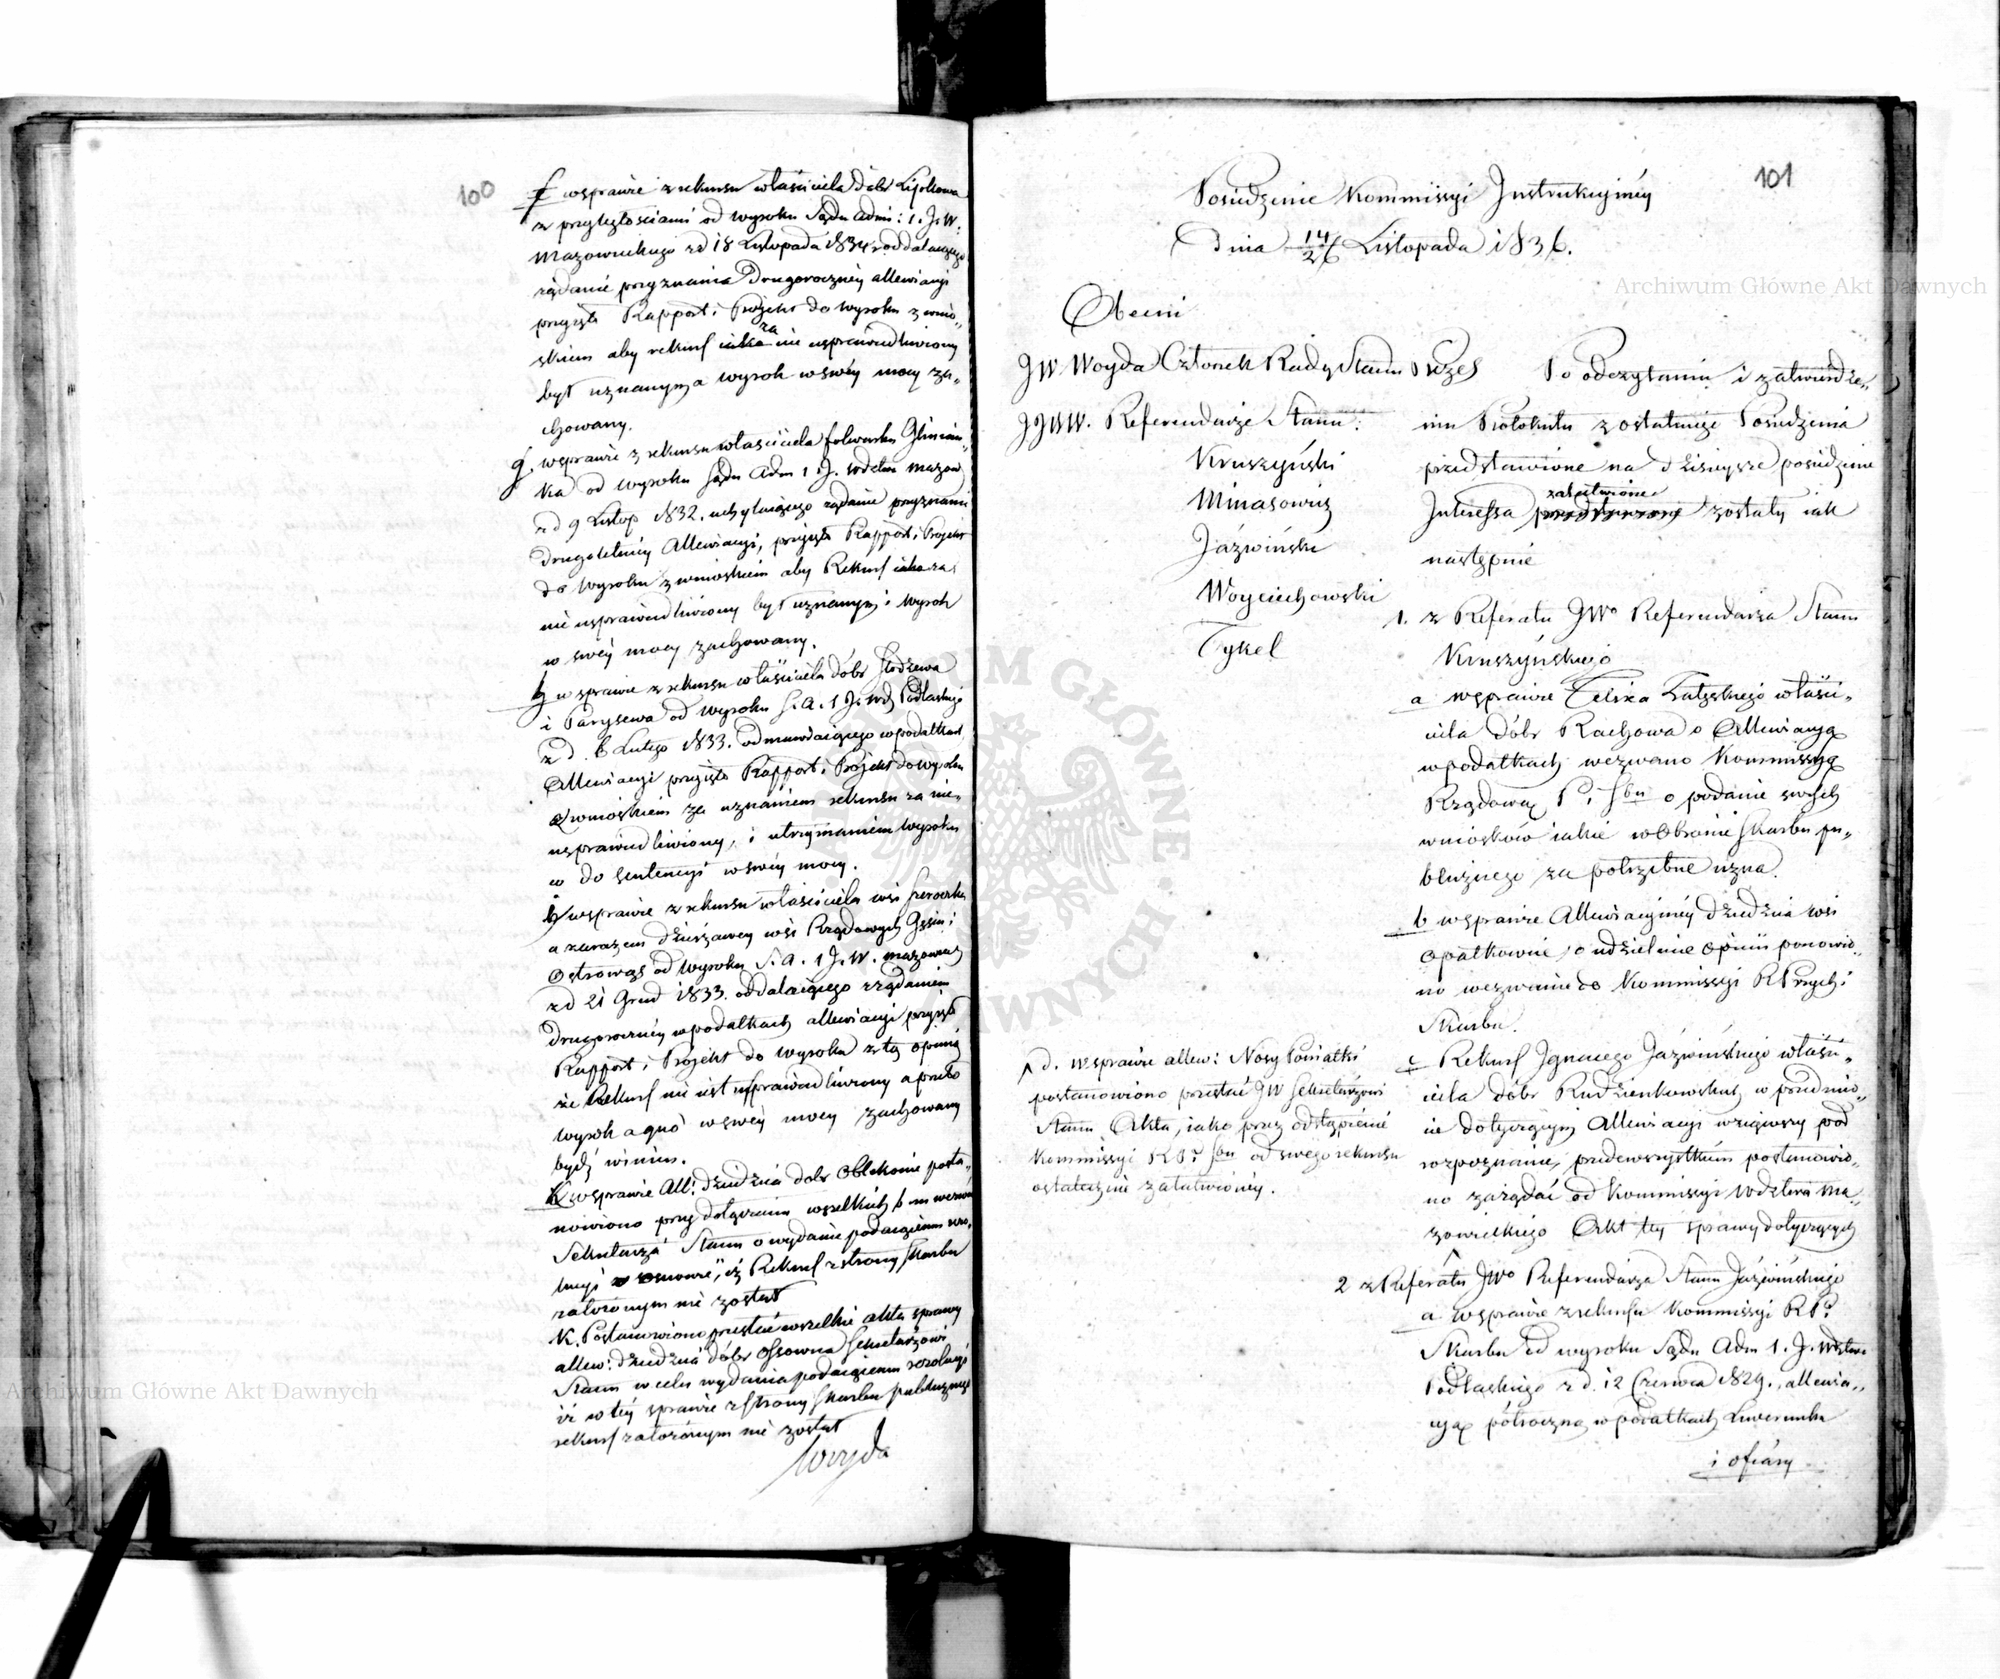 100
f w sprawie z rekursu właściciela dóbr Lipkowa
z przyległościami od wyroku Sądu Adm: 1. J. W.
Mazowieckiego z d 18 Listopada 1834 r oddalaiącego
żądanie przyznania drugoroczney allewiacyi
przyięto Rapport i Projekt do wyroku z wnio„
skiem aby rekurs iako za nie usprawiedliwiony
był uznanym a wyrok w swéy mocy za„
chowany.
g. w sprawie z rekursu właściciela folwarku Glinian„
ka od wyroku Sądu Adm 1 J. wdztwa Mazow
z d 9 Listop 1832. uchylaiącego żądanie przyznania
drugoletniéy Allewiacyi, przyięto Rapport i Projekt
do wyroku z wnioskiem aby Rekurs iako za
nie usprawiedliwiony był uznanym i wyrok
w swéy mocy zachowany.
h w sprawie z rekursu właściciela dóbr Stodzewa
i Parysewa od wyroku S. A. 1 J. wdz Podlaskiego
z d. 6 Lutego 1833. odmawiaiącego w podatkach
Allewiacyi przyięto Rapport i Projekt do wyroku
z wnioskiem za uznaniem rekursu za nie„
usprawiedliwiony, i utrzymaniem wyroku
co do sentencyi w swéy mocy.
i w sprawie z rekursu właściciela wsi
a zarazem dzierżawcy wsi Rządowych Gąsin i
Ostrowąs od wyroku S. A. 1 J. W. Mazowiec
z d 21 Grud 1833. oddalaiącego żądaniem
drugoroczniéy w podatkach allewiacyi przyięto
Rapport i Projekt do wyroku z tą opinią
że Rekurs nie iest usprawiedliwiony a przeto
wyrok a quo w swéy mocy zachowany
bydź winien.
K w sprawie All: dziedzica dóbr posta„
nowiono przy dołączeniu wszelkich
Sekretarza Stanu o wydanie podaiącemu rezo„
lucyi iż Rekurs z strony Skarbu
założonym nie został
K. Postanowiono przesłać wszelkie akta sprawy
allew: dziedzica dóbr Ossowna Sekretarzowi
Stanu w celu wydania podaiącemu rezolucyi
iż w téy sprawie z strony Skarbu publicznego
rekurs założonym nie został
Woyda
101
Posiedzenie Kommissyi Instrukcyinéy
dnia 14/26 Listopada 1836.
Obecni
JW Woyda Członek Rady Stanu Prezes
JJWW. Referendarze Stanu:
Kruszyński
Minasowicz
Jáźwiński
Woyciechowski
Tykel
Po odczytaniu i zatwierdze„
niu Protokułu z ostatniego Posiedzenia
przedstawione na dzisieysze posiedzenie
Interessa załatwione zostały iak
następnie
1. z Referatu JWo Referendarza Stanu
Kruszyńskiego
a w sprawie Felixa właści„
ciela dóbr Rachowa o Allewiacyą
w podatkach wezwano Kommissyą
Rządową P. i Sbu o podanie swych
wniosków iakie w Obronie Skarbu pu„
blicznego za potrzebne uzna.
b w sprawie Allewiacyinéy dziedzica wsi
Opatkowic, o udzielenie opinii ponowio„
no wezwanie do Kommissyi R Przych: i
Skarbu.
c Rekurs Ignacego Jáźwińskiego właści„
ciela dóbr Rudzienkowskich w przedmio„
cie dotyczącym Allewiacyi wziąwszy pod
rozpoznanie, przedewszystkiém postanowio„
no zażądać od Kommissyi wdztwa Ma„
zowieckiego Akt téy sprawy dotyczących
d. w sprawie allew: Nosy Poniatki
postanowiono przesłać JW Sekretarzowi
Stanu Akta, iako przez odstąpienie
Kommissyi R P. i Sbu od swego rekursu
ostatecznie załatwionéy.
2 z Referatu JWo Referendarza Stanu Jáźwińskiego
a w sprawie z rekursu Kommissyi R P. i
Skarbu od wyroku Sądu Adm 1. J. Wdztwa
Podlaskiego z d. 12 Czerwca 1829., allewia„
cyą półroczną w podatkach Liwerunku
i ofiary
Archiwum Główne Akt Dawnych
Archiwum Główne Akt Dawnych